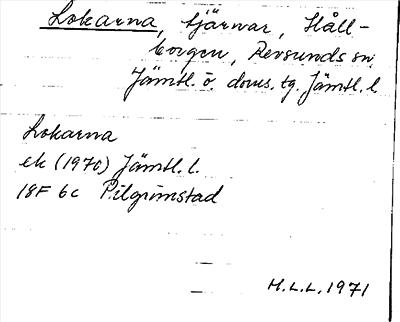 Lokarna, tjärnar, Håll-
borgen, Revsunds sn,
Jämtl. ö. doms. tg. Jämtl. l
Lokarna
ek (1970) Jämtl. l.
18F 6c Pilgrimstad
H.L.L. 1971